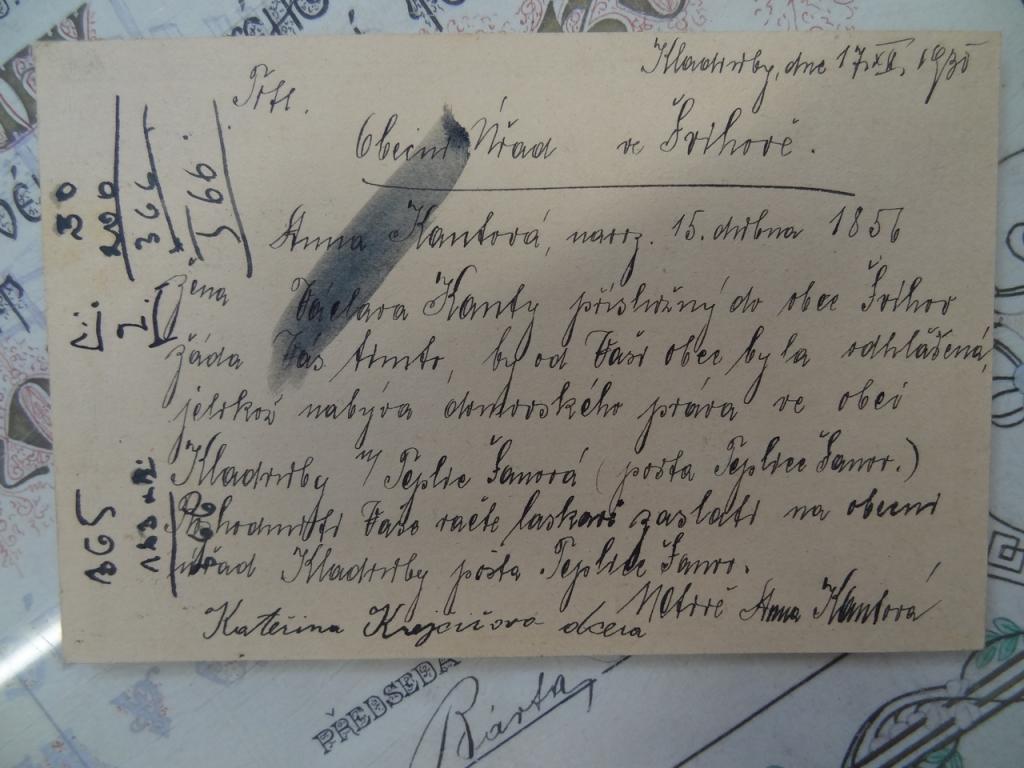 Kladruby, dne 17.XII. 1930
Ttl.
Obecní Úřad ve Švihově.
Anna Kantová, naroz. 15. dubna 1856
žena Václava Kanty příslušný do obce Švihov
žáda Vás tímto, by od Vaší obce byla odhlášená,
jelikož nabývá domovského práva ve obci
Kladruby n/ Teplic Šanová (pošta Teplice Šanov.)
Rozhodnutí Vaše račte laskavě zaslati na obecní
úřad Kladruby pošta Teplice Šanov.
Anna Kantová
Kateřina Krejčíšova dcera
30
200
366
566
365
PŘEDSEDA
Bárta